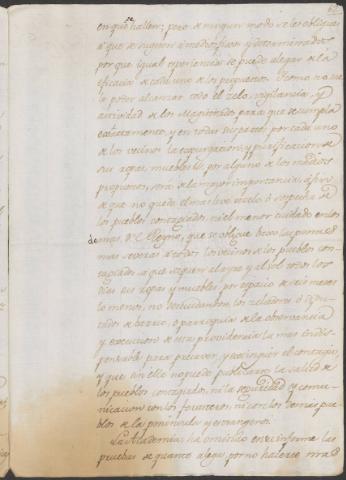 en que se hallen; pero de ningun modo se les obligue
à que se sugeten à modos fixos y determinados
por que igual experiencia se puede alegar de la
eficacia de cada uno de los propuestos. Como no
es poder alcanzar todo el zelo, vigilancia, y
actividad de los Magistrados para que se cumpla
exactamente, y en todas sus partes por cada uno
de los vecinos la expurgacion, y purificacion de
sus ropas, muebles &c. por alguno de los medios
propuestos, sera de la mayor importancia, à fin
de que no quede el mas leve rezelo ò sospecha de
los pueblos contagiados, ni el menor cuidado en los
demas del Reyno, que se obligue bajo las penas
mas severas à todos los vecinos de los pueblos con-
tagiados à que oreen al ayre y al sol todos los
dias sus ropas y muebles por espacio de seis meses
lo menos, no descuidandose los zeladores ò Dipu-
tados de barrio, o parroquia de la observancia
y execucion de esta providencia la mas indis-
pensable para precaver, y extinguir el contagio,
y que sin ella no puede publicarse la salud de
los pueblos contagiados, ni la seguridad y comu-
nicacion con los forasteros, ni con los demas pue-
blos de la peninsula y estrangeros.
La Academia ha omitido en este informe las
pruebas de quanto alega, por no hacerlo mas